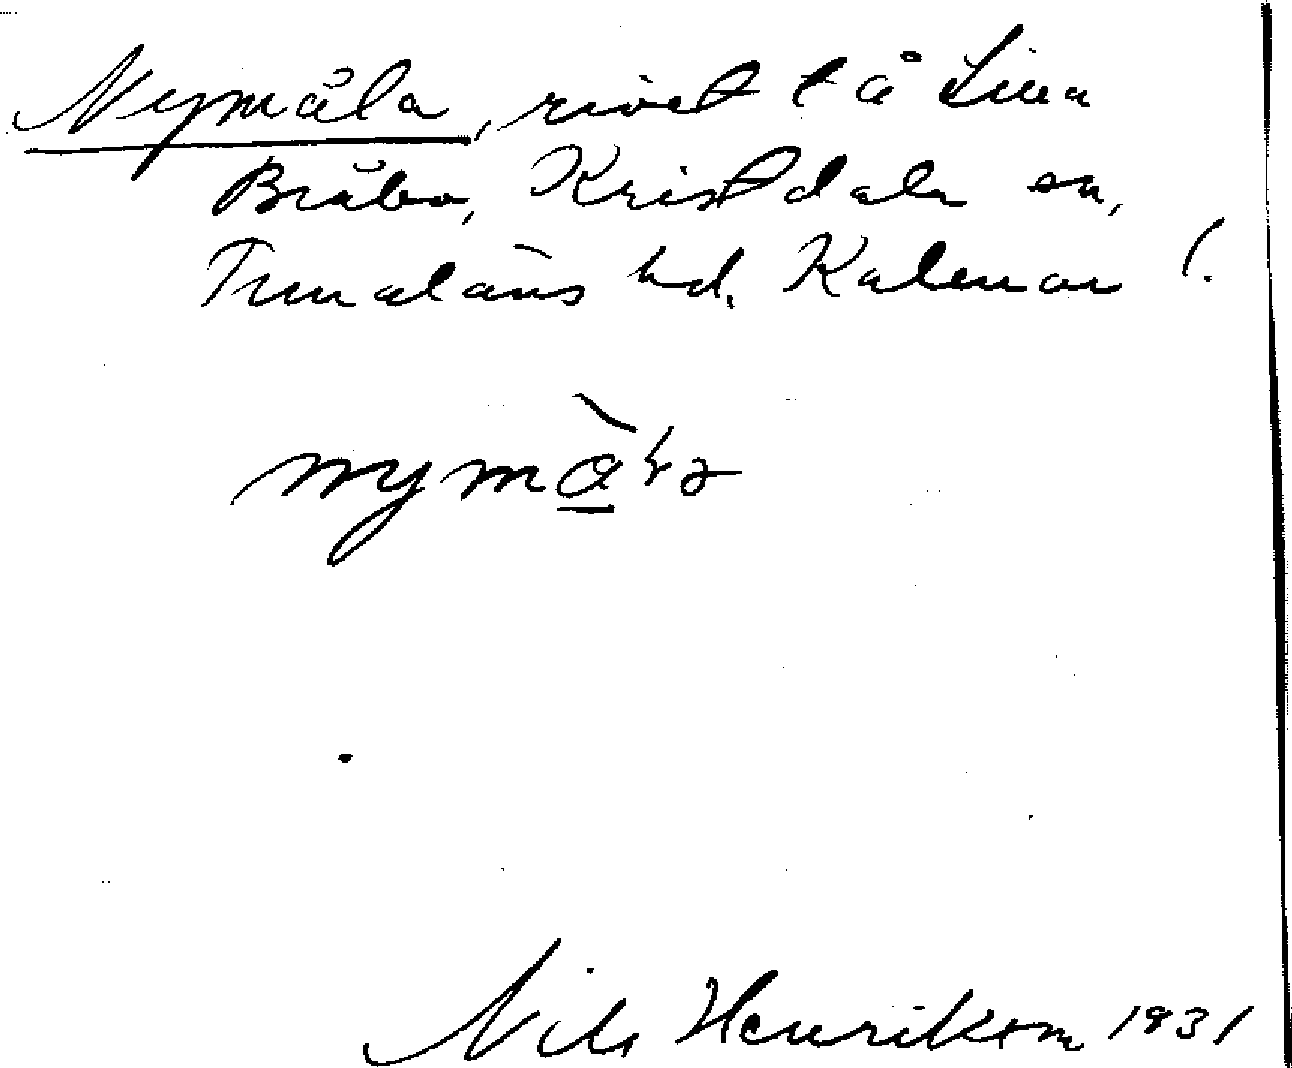 Nymåla, rivet t å Lilla
Bråbo, Kristdala sn,
Tunaläns hd. Kalmar l.
nymå̀la
Nils Henrikson 1931